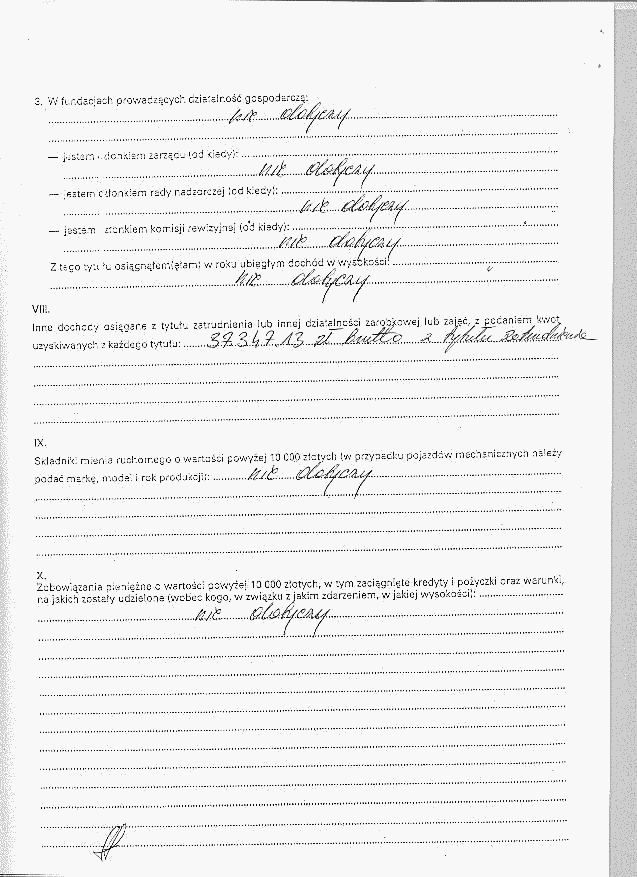 3. W fundacjach prowadzących działalność gospodarczą:
nie dotyczy
— jestem członkiem zarządu (od kiedy):
nie dotyczy
— jestem członkiem rady nadzorczej (od kiedy):
nie dotyczy
— jestem członkiem komisji rewizyjnej (od kiedy):
nie dotyczy
Z tego tytułu osiągnąłem(ęłam) w roku ubiegłym dochód w wysokości:
nie dotyczy
VIII.
Inne dochody osiągane z tytułu zatrudnienia lub innej działalności zarobkowej lub zajęć, z podaniem kwot
uzyskiwanych z każdego tytułu: 37.347.13 zł brutto z tytułu zatrudnienia
IX.
Składniki mienia ruchomego o wartości powyżej 10 000 złotych (w przypadku pojazdów mechanicznych należy
podać markę, model i rok produkcji): nie dotyczy
X.
Zobowiązania pieniężne o wartości powyżej 10 000 złotych, w tym zaciągnięte kredyty i pożyczki oraz warunki,
na jakich zostały udzielone (wobec kogo, w związku z jakim zdarzeniem, w jakiej wysokości):
nie dotyczy